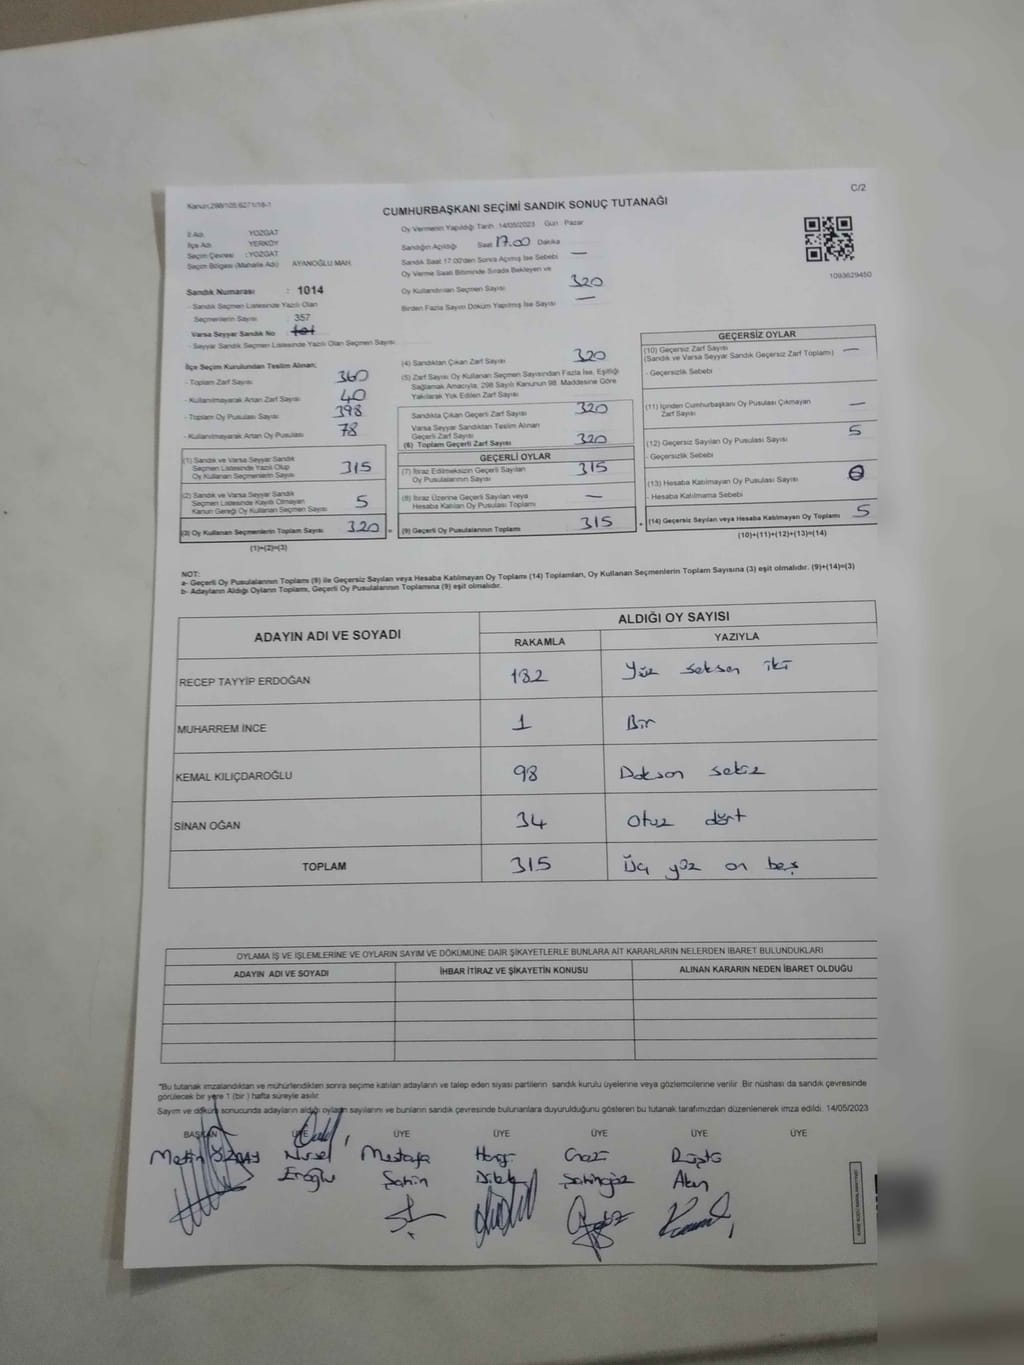 Kanun:298/105-6271/18-1
C/2
CUMHURBAŞKANI SEÇİMİ SANDIK SONUÇ TUTANAĞI
İl Adı YOZGAT
İlçe Adı YERKÖY
Seçim Çevresi :YOZGAT
Seçim Bölgesi (Mahalle Adı) AYANOĞLU MAH.
Sandık Numarası : 1014
- Sandık Seçmen Listesinde Yazılı Olan
Seçmenlerin Sayısı : 357
Varsa Seyyar Sandık No
- Seyyar Sandık Seçmen Listesinde Yazılı Olan Seçmen Sayısı
Oy Vermenin Yapıldığı Tarih :14/05/2023 Gün : Pazar
Sandığın Açıldığı Saat 17.00 Dakika
Sandık Saat 17:00'den Sonra Açılmış İse Sebebi —
Oy Verme Saati Bitiminde Sırada Bekleyen ve
Oy Kullandırılan Seçmen Sayısı 320
Birden Fazla Sayım Döküm Yapılmış İse Sayısı —
1093629450
İlçe Seçim Kurulundan Teslim Alınan;
- Toplam Zarf Sayısı 360
- Kullanılmayarak Artan Zarf Sayısı 40
- Toplam Oy Pusulası Sayısı 398
- Kullanılmayarak Artan Oy Pusulası 78
(1) Sandık ve Varsa Seyyar Sandık
Seçmen Listesinde Yazılı Olup
Oy Kullanan Seçmenlerin Sayısı 315
(2) Sandık ve Varsa Seyyar Sandık
Seçmen Listesinde Kayıtlı Olmayan
Kanun Gereği Oy Kullanan Seçmen Sayısı 5
(3) Oy Kullanan Seçmenlerin Toplam Sayısı 320 =
(1)+(2)=(3)
(4) Sandıktan Çıkan Zarf Sayısı 320
(5) Zarf Sayısı Oy Kullanan Seçmen Sayısından Fazla İse, Eşitliği
Sağlamak Amacıyla; 298 Sayılı Kanunun 98. Maddesine Göre
Yakılarak Yok Edilen Zarf Sayısı
Sandıkta Çıkan Geçerli Zarf Sayısı 320
Varsa Seyyar Sandıktan Teslim Alınan
Geçerli Zarf Sayısı
(6) Toplam Geçerli Zarf Sayısı 320
GEÇERLİ OYLAR
(7) İtiraz Edilmeksizin Geçerli Sayılan
Oy Pusulalarının Sayısı 315
(8) İtiraz Üzerine Geçerli Sayılan veya
Hesaba Katılan Oy Pusulası Toplamı —
(9) Geçerli Oy Pusulalarının Toplamı 315 +
GEÇERSİZ OYLAR
(10) Geçersiz Zarf Sayısı —
(Sandık ve Varsa Seyyar Sandık Geçersiz Zarf Toplamı)
- Geçersizlik Sebebi
(11) İçinden Cumhurbaşkanı Oy Pusulası Çıkmayan
Zarf Sayısı —
(12) Geçersiz Sayılan Oy Pusulası Sayısı 5
- Geçersizlik Sebebi
(13) Hesaba Katılmayan Oy Pusulası Sayısı
- Hesaba Katılmama Sebebi
(14) Geçersiz Sayılan veya Hesaba Katılmayan Oy Toplamı 5
(10)+(11)+(12)+(13)=(14)
NOT:
a- Geçerli Oy Pusulalarının Toplamı (9) ile Geçersiz Sayılan veya Hesaba Katılmayan Oy Toplamı (14) Toplamları, Oy Kullanan Seçmenlerin Toplam Sayısına (3) eşit olmalıdır. (9)+(14)=(3)
b- Adayların Aldığı Oyların Toplamı, Geçerli Oy Pusulalarının Toplamına (9) eşit olmalıdır.
ADAYIN ADI VE SOYADI ALDIĞI OY SAYISI
RAKAMLA YAZIYLA
RECEP TAYYİP ERDOĞAN 182 Yüz seksen iki
MUHARREM İNCE 1 Bir
KEMAL KILIÇDAROĞLU 98 Doksan sekiz
SİNAN OĞAN 34 Otuz dört
TOPLAM 315 Üç yüz on beş
OYLAMA İŞ VE İŞLEMLERİNE VE OYLARIN SAYIM VE DÖKÜMÜNE DAİR ŞİKAYETLERLE BUNLARA AİT KARARLARIN NELERDEN İBARET BULUNDUKLARI
ADAYIN ADI VE SOYADI İHBAR İTİRAZ VE ŞİKAYETİN KONUSU ALINAN KARARIN NEDEN İBARET OLDUĞU
"Bu tutanak imzalandıktan ve mühürlendikten sonra seçime katılan adayların ve talep eden siyasi partilerin sandık kurulu üyelerine veya gözlemcilerine verilir. Bir nüshası da sandık çevresinde
görülecek bir yere 1 (bir) hafta süreyle asılır.
Sayım ve döküm sonucunda adayların aldığı oyların sayılarını ve bunların sandık çevresinde bulunanlara duyurulduğunu gösteren bu tutanak tarafımızdan düzenlenerek imza edildi. 14/05/2023
BAŞKAN ÜYE ÜYE ÜYE ÜYE ÜYE ÜYE
Metin Nursel Mustafa
Eroğlu Şahin Şahingöz